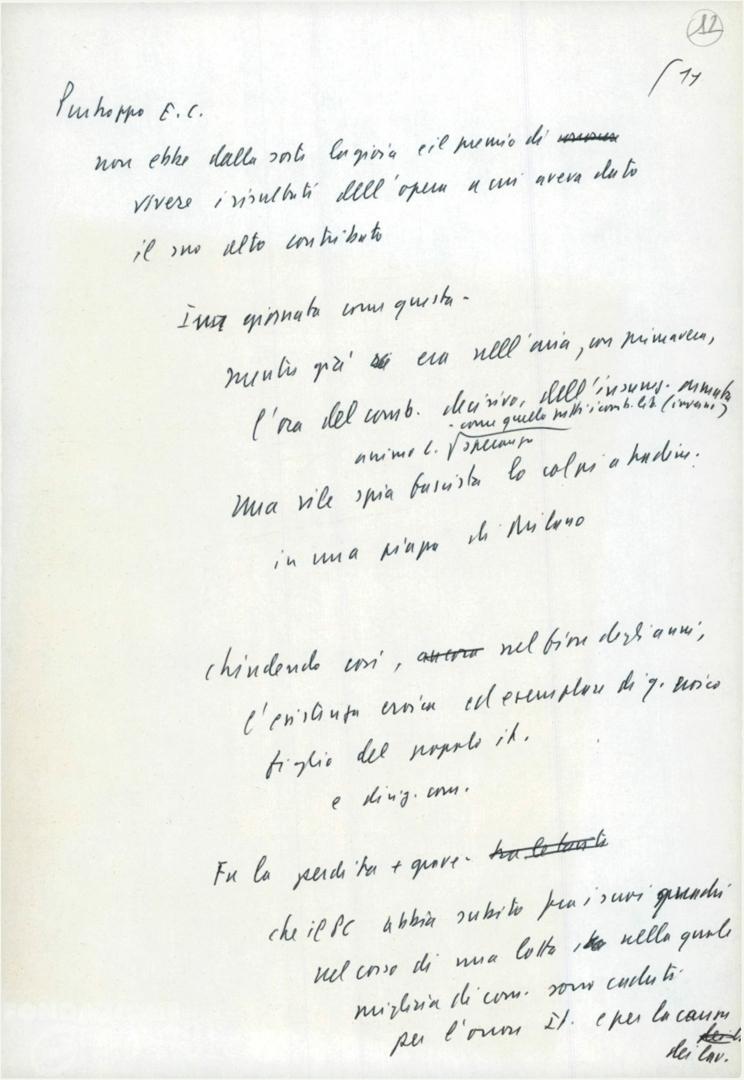 12
17
Purtroppo E.C.
non ebbe dalla sorte la gioia e il premio di
vivere i risultati dell'opera a cui aveva dato
il suo alto contributo
In giornata come questa -
mentre già era nell'aria, con primavera,
l'ora del comb. decisivo, dell'insurrez. armata
- come quella di tutti i comb. lib. (invano)
animo C.
Una vile spia fascista lo colpì a tradim.
in una piazza di Milano
chiudendo così, ancora nel fiore degli anni,
l'esistenza eroica ed esemplare di q. eroico
figlio del popolo it.
e dirig. com.
Fu la perdita + grave - tra le tante
che il PC abbia subito fra i suoi quadri
nel corso di una lotta nella quale
migliaia di com. sono caduti
per l'onore It. e per la causa
dei lav.